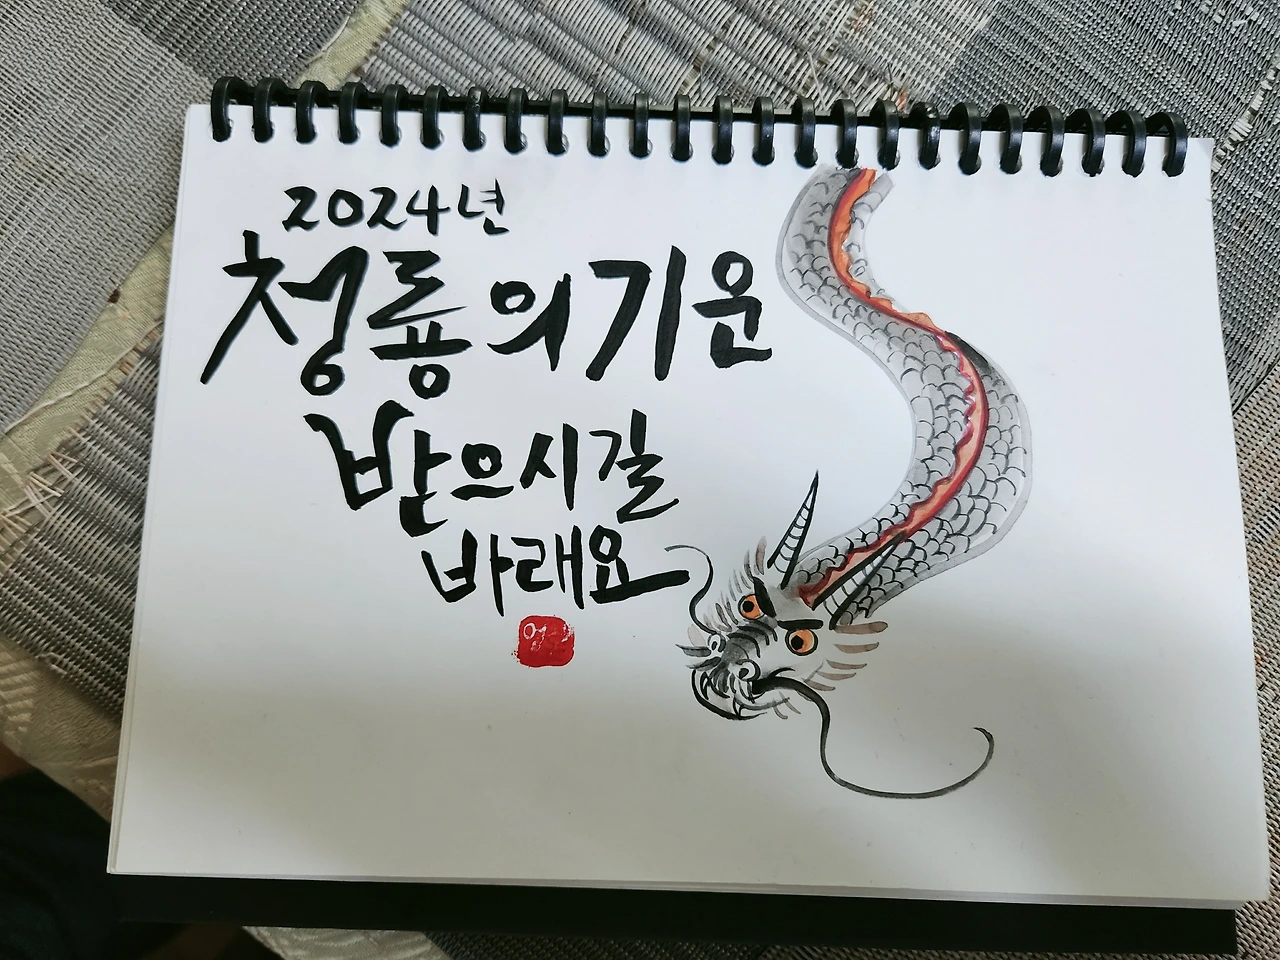 2024년
청룡의 기운
받으시길
바래요